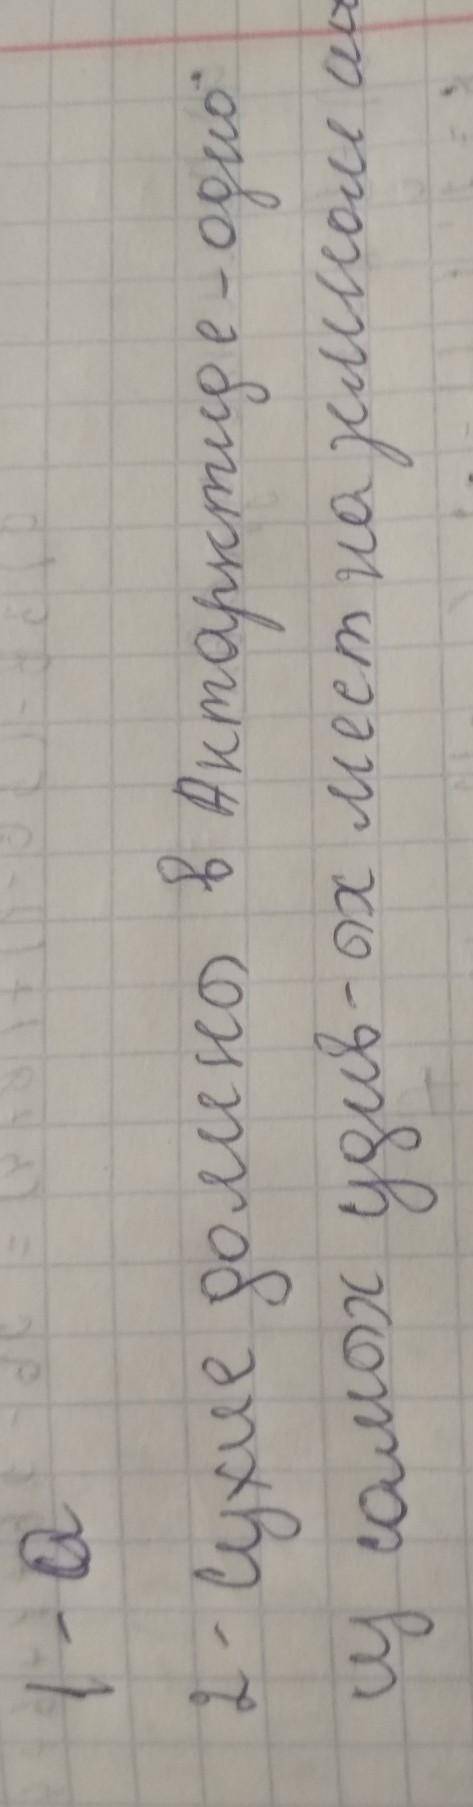 1 - а
2 - Сухие долины в Антарктиде - одно
из самых удив-ых мест на земном